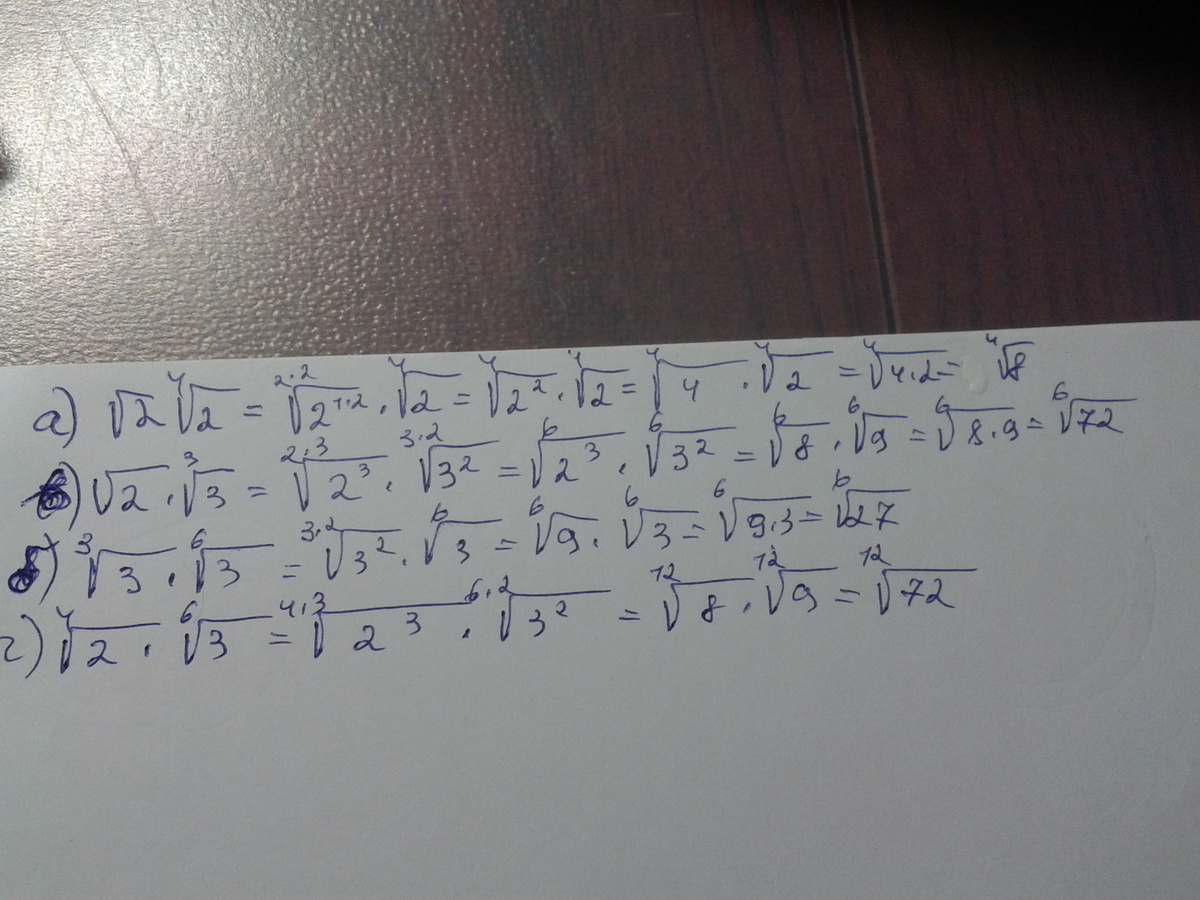 а) √2 ⁴√2 = ²·²√2¹·² · ⁴√2 = ⁴√2² · ⁴√2 = ⁴√4 · ⁴√2 = ⁴√4·2 = ⁴√8
в) √2 · ³√3 = ²·³√2³ · ³·²√3² = ⁶√2³ · ⁶√3² = ⁶√8 · ⁶√9 = ⁶√8·9 = ⁶√72
б) ³√3 · ⁶√3 = ³·²√3² · ⁶√3 = ⁶√9 · ⁶√3 = ⁶√9·3 = ⁶√27
г) ⁴√2 · ⁶√3 = ⁴·³√2³ · ⁶·²√3² = ¹²√8 · ¹²√9 = ¹²√72